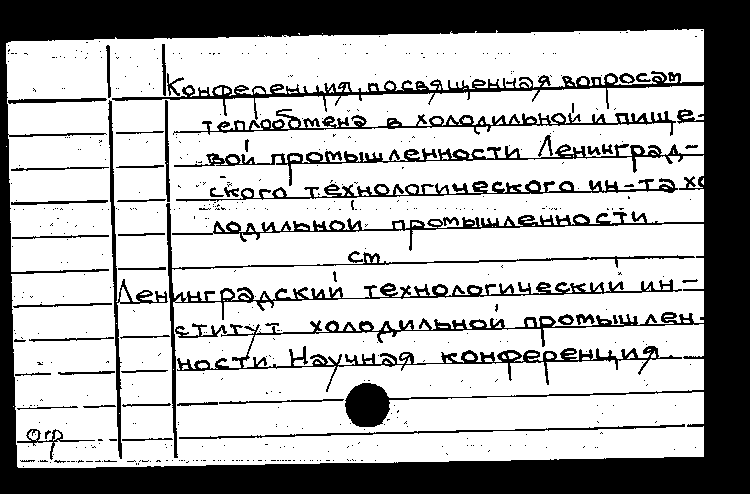 Конференция, посвященная вопросам
теплообмена в холодильной и пище-
вой промышленности Ленинград-
ского технологического ин-та хо
лодильной промышленности.
см.
Ленинградский технологический ин-
ститут холодильной промышлен-
ности. Научная конференция.
огр